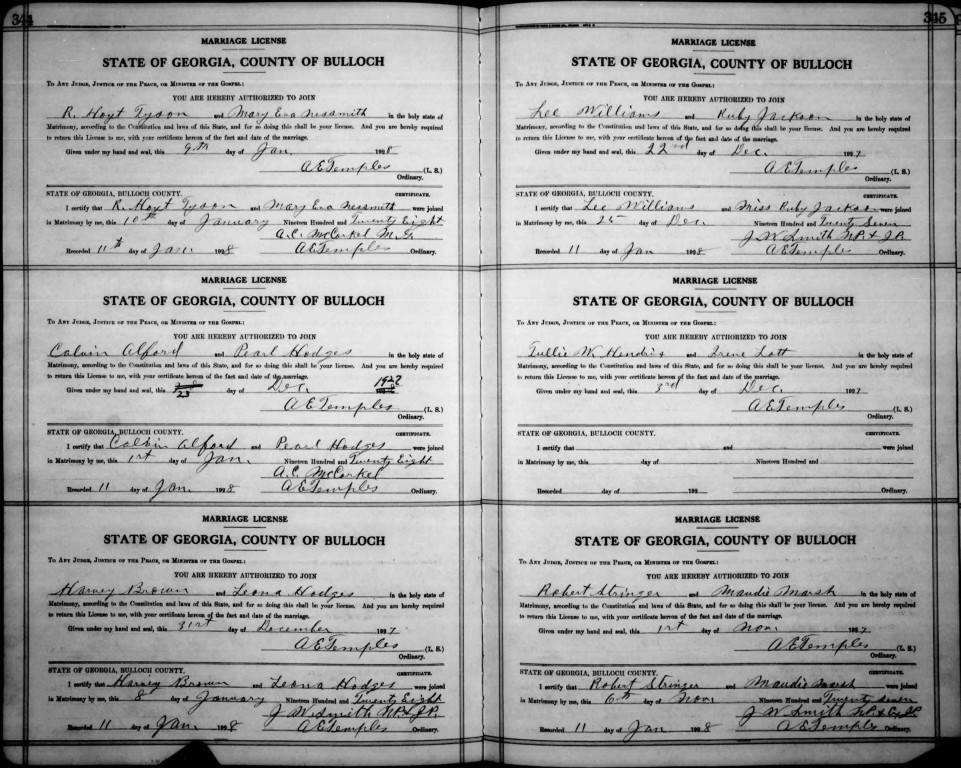 344
MARRIAGE LICENSE
STATE OF GEORGIA, COUNTY OF BULLOCH
To Any Judge, Justice of the Peace, or Minister of the Gospel:
YOU ARE HEREBY AUTHORIZED TO JOIN
R. Hoyt Tyson and Mary Eva Nesmith in the holy state of
Matrimony, according to the Constitution and laws of this State, and for so doing this shall be your license. And you are hereby required
to return this License to me, with your certificate hereon of the fact and date of the marriage.
Given under my hand and seal, this 9th day of Jan. 1928
A E Temples (L. S.)
Ordinary.
STATE OF GEORGIA, BULLOCH COUNTY. CERTIFICATE.
I certify that R. Hoyt Tyson and Mary Eva Nessmith were joined
in Matrimony by me, this 10th day of January Nineteen Hundred and Twenty Eight
A. C. McCorkel M. G.
Recorded 11th day of Jan. 1928 A E Temples Ordinary.
MARRIAGE LICENSE
STATE OF GEORGIA, COUNTY OF BULLOCH
To Any Judge, Justice of the Peace, or Minister of the Gospel:
YOU ARE HEREBY AUTHORIZED TO JOIN
Calvin Alford and Pearl Hodges in the holy state of
Matrimony, according to the Constitution and laws of this State, and for so doing this shall be your license. And you are hereby required
to return this License to me, with your certificate hereon of the fact and date of the marriage.
Given under my hand and seal, this 23 day of Dec. 1927
A E Temples (L. S.)
Ordinary.
STATE OF GEORGIA, BULLOCH COUNTY. CERTIFICATE.
I certify that Calvin Alford and Pearl Hodges were joined
in Matrimony by me, this 1st day of Jan. Nineteen Hundred and Twenty Eight
A. C. McCorkel
Recorded 11 day of Jan. 1928 A E Temples Ordinary.
MARRIAGE LICENSE
STATE OF GEORGIA, COUNTY OF BULLOCH
To Any Judge, Justice of the Peace, or Minister of the Gospel:
YOU ARE HEREBY AUTHORIZED TO JOIN
Harvey Brown and Leona Hodges in the holy state of
Matrimony, according to the Constitution and laws of this State, and for so doing this shall be your license. And you are hereby required
to return this License to me, with your certificate hereon of the fact and date of the marriage.
Given under my hand and seal, this 31st day of December 1927
A E Temples (L. S.)
Ordinary.
STATE OF GEORGIA, BULLOCH COUNTY. CERTIFICATE.
I certify that Harvey Brown and Leona Hodges were joined
in Matrimony by me, this 8 day of January Nineteen Hundred and Twenty Eight
J W Smith N.P. & J.P.
Recorded 11 day of Jan. 1928 A E Temples Ordinary.
345
MARRIAGE LICENSE
STATE OF GEORGIA, COUNTY OF BULLOCH
To Any Judge, Justice of the Peace, or Minister of the Gospel:
YOU ARE HEREBY AUTHORIZED TO JOIN
Lee Williams and Ruby Jackson in the holy state of
Matrimony, according to the Constitution and laws of this State, and for so doing this shall be your license. And you are hereby required
to return this License to me, with your certificate hereon of the fact and date of the marriage.
Given under my hand and seal, this 22nd day of Dec. 1927
A E Temples (L. S.)
Ordinary.
STATE OF GEORGIA, BULLOCH COUNTY. CERTIFICATE.
I certify that Lee Williams and Miss Ruby Jackson were joined
in Matrimony by me, this 25 day of Dec. Nineteen Hundred and Twenty Seven
J W Smith N.P. & J.P.
Recorded 11 day of Jan 1928 A E Temples Ordinary.
MARRIAGE LICENSE
STATE OF GEORGIA, COUNTY OF BULLOCH
To Any Judge, Justice of the Peace, or Minister of the Gospel:
YOU ARE HEREBY AUTHORIZED TO JOIN
Tullie W. Hendrix and Irene Lott in the holy state of
Matrimony, according to the Constitution and laws of this State, and for so doing this shall be your license. And you are hereby required
to return this License to me, with your certificate hereon of the fact and date of the marriage.
Given under my hand and seal, this 3rd day of Dec. 1927
A E Temples (L. S.)
Ordinary.
STATE OF GEORGIA, BULLOCH COUNTY. CERTIFICATE.
I certify that and were joined
in Matrimony by me, this day of Nineteen Hundred and
Recorded day of 192 Ordinary.
MARRIAGE LICENSE
STATE OF GEORGIA, COUNTY OF BULLOCH
To Any Judge, Justice of the Peace, or Minister of the Gospel:
YOU ARE HEREBY AUTHORIZED TO JOIN
Robert Stringer and Maudie Marsh in the holy state of
Matrimony, according to the Constitution and laws of this State, and for so doing this shall be your license. And you are hereby required
to return this License to me, with your certificate hereon of the fact and date of the marriage.
Given under my hand and seal, this 1st day of Nov. 1927
A E Temples (L. S.)
Ordinary.
STATE OF GEORGIA, BULLOCH COUNTY. CERTIFICATE.
I certify that Robert Stringer and Maudie Marsh were joined
in Matrimony by me, this 6th day of Nov. Nineteen Hundred and Twenty Seven
J W Smith N.P.
Recorded 11 day of Jan 1928 A E Temples Ordinary.